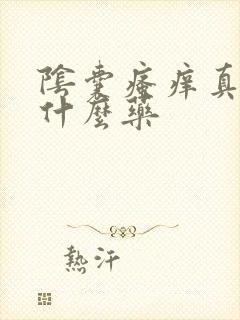 陰囊瘙痒真
什麼藥
熱汗